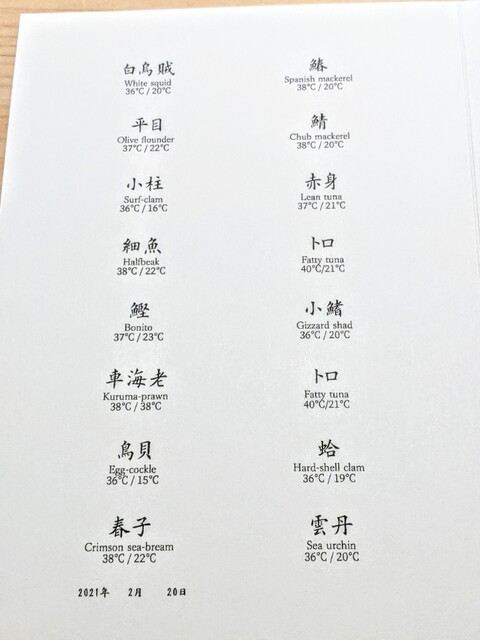 白烏賊
White squid
36℃ / 20℃
平目
Olive flounder
37℃ / 22℃
小柱
Surf-clam
36℃ / 16℃
細魚
Halfbeak
38℃ / 22℃
鰹
Bonito
37℃ / 23℃
車海老
Kuruma-prawn
38℃ / 38℃
鳥貝
Egg-cockle
36℃ / 15℃
春子
Crimson sea-bream
38℃ / 22℃
2021年 2月 20日
鰆
Spanish mackerel
38℃ / 20℃
鯖
Chub mackerel
38℃ / 20℃
赤身
Lean tuna
37℃ / 21℃
トロ
Fatty tuna
40℃/21℃
小鰭
Gizzard shad
36℃ / 20℃
トロ
Fatty tuna
40℃/21℃
蛤
Hard-shell clam
36℃ / 19℃
雲丹
Sea urchin
36℃ / 20℃